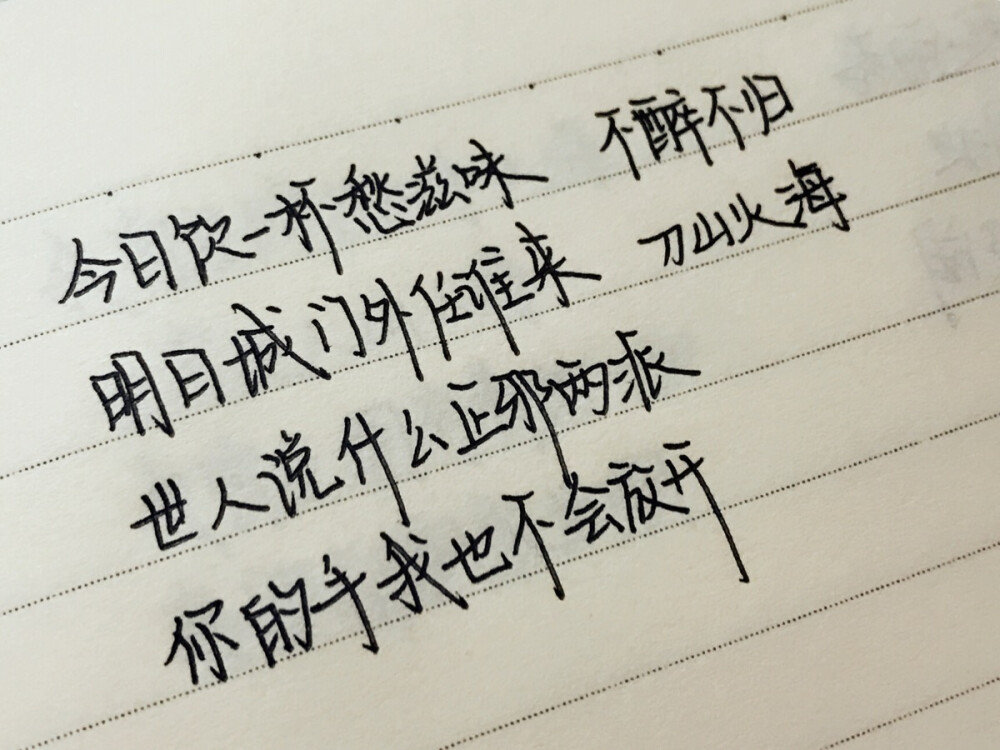 今日饮一杯愁滋味 不醉不归
明日城门外任谁来 刀山火海
世人说什么正邪两派
你的手我也不会放开